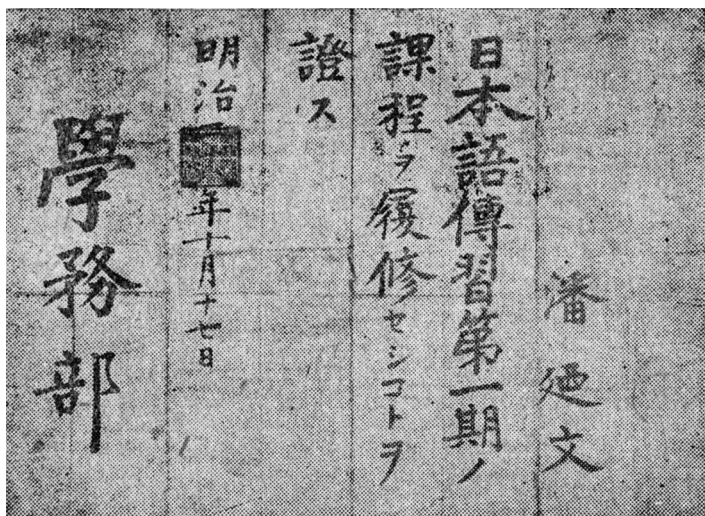 潘廼文
日本語傳習第一期ノ
課程ヲ履修セシコトヲ
證ス
明治 年十月十七日
學務部